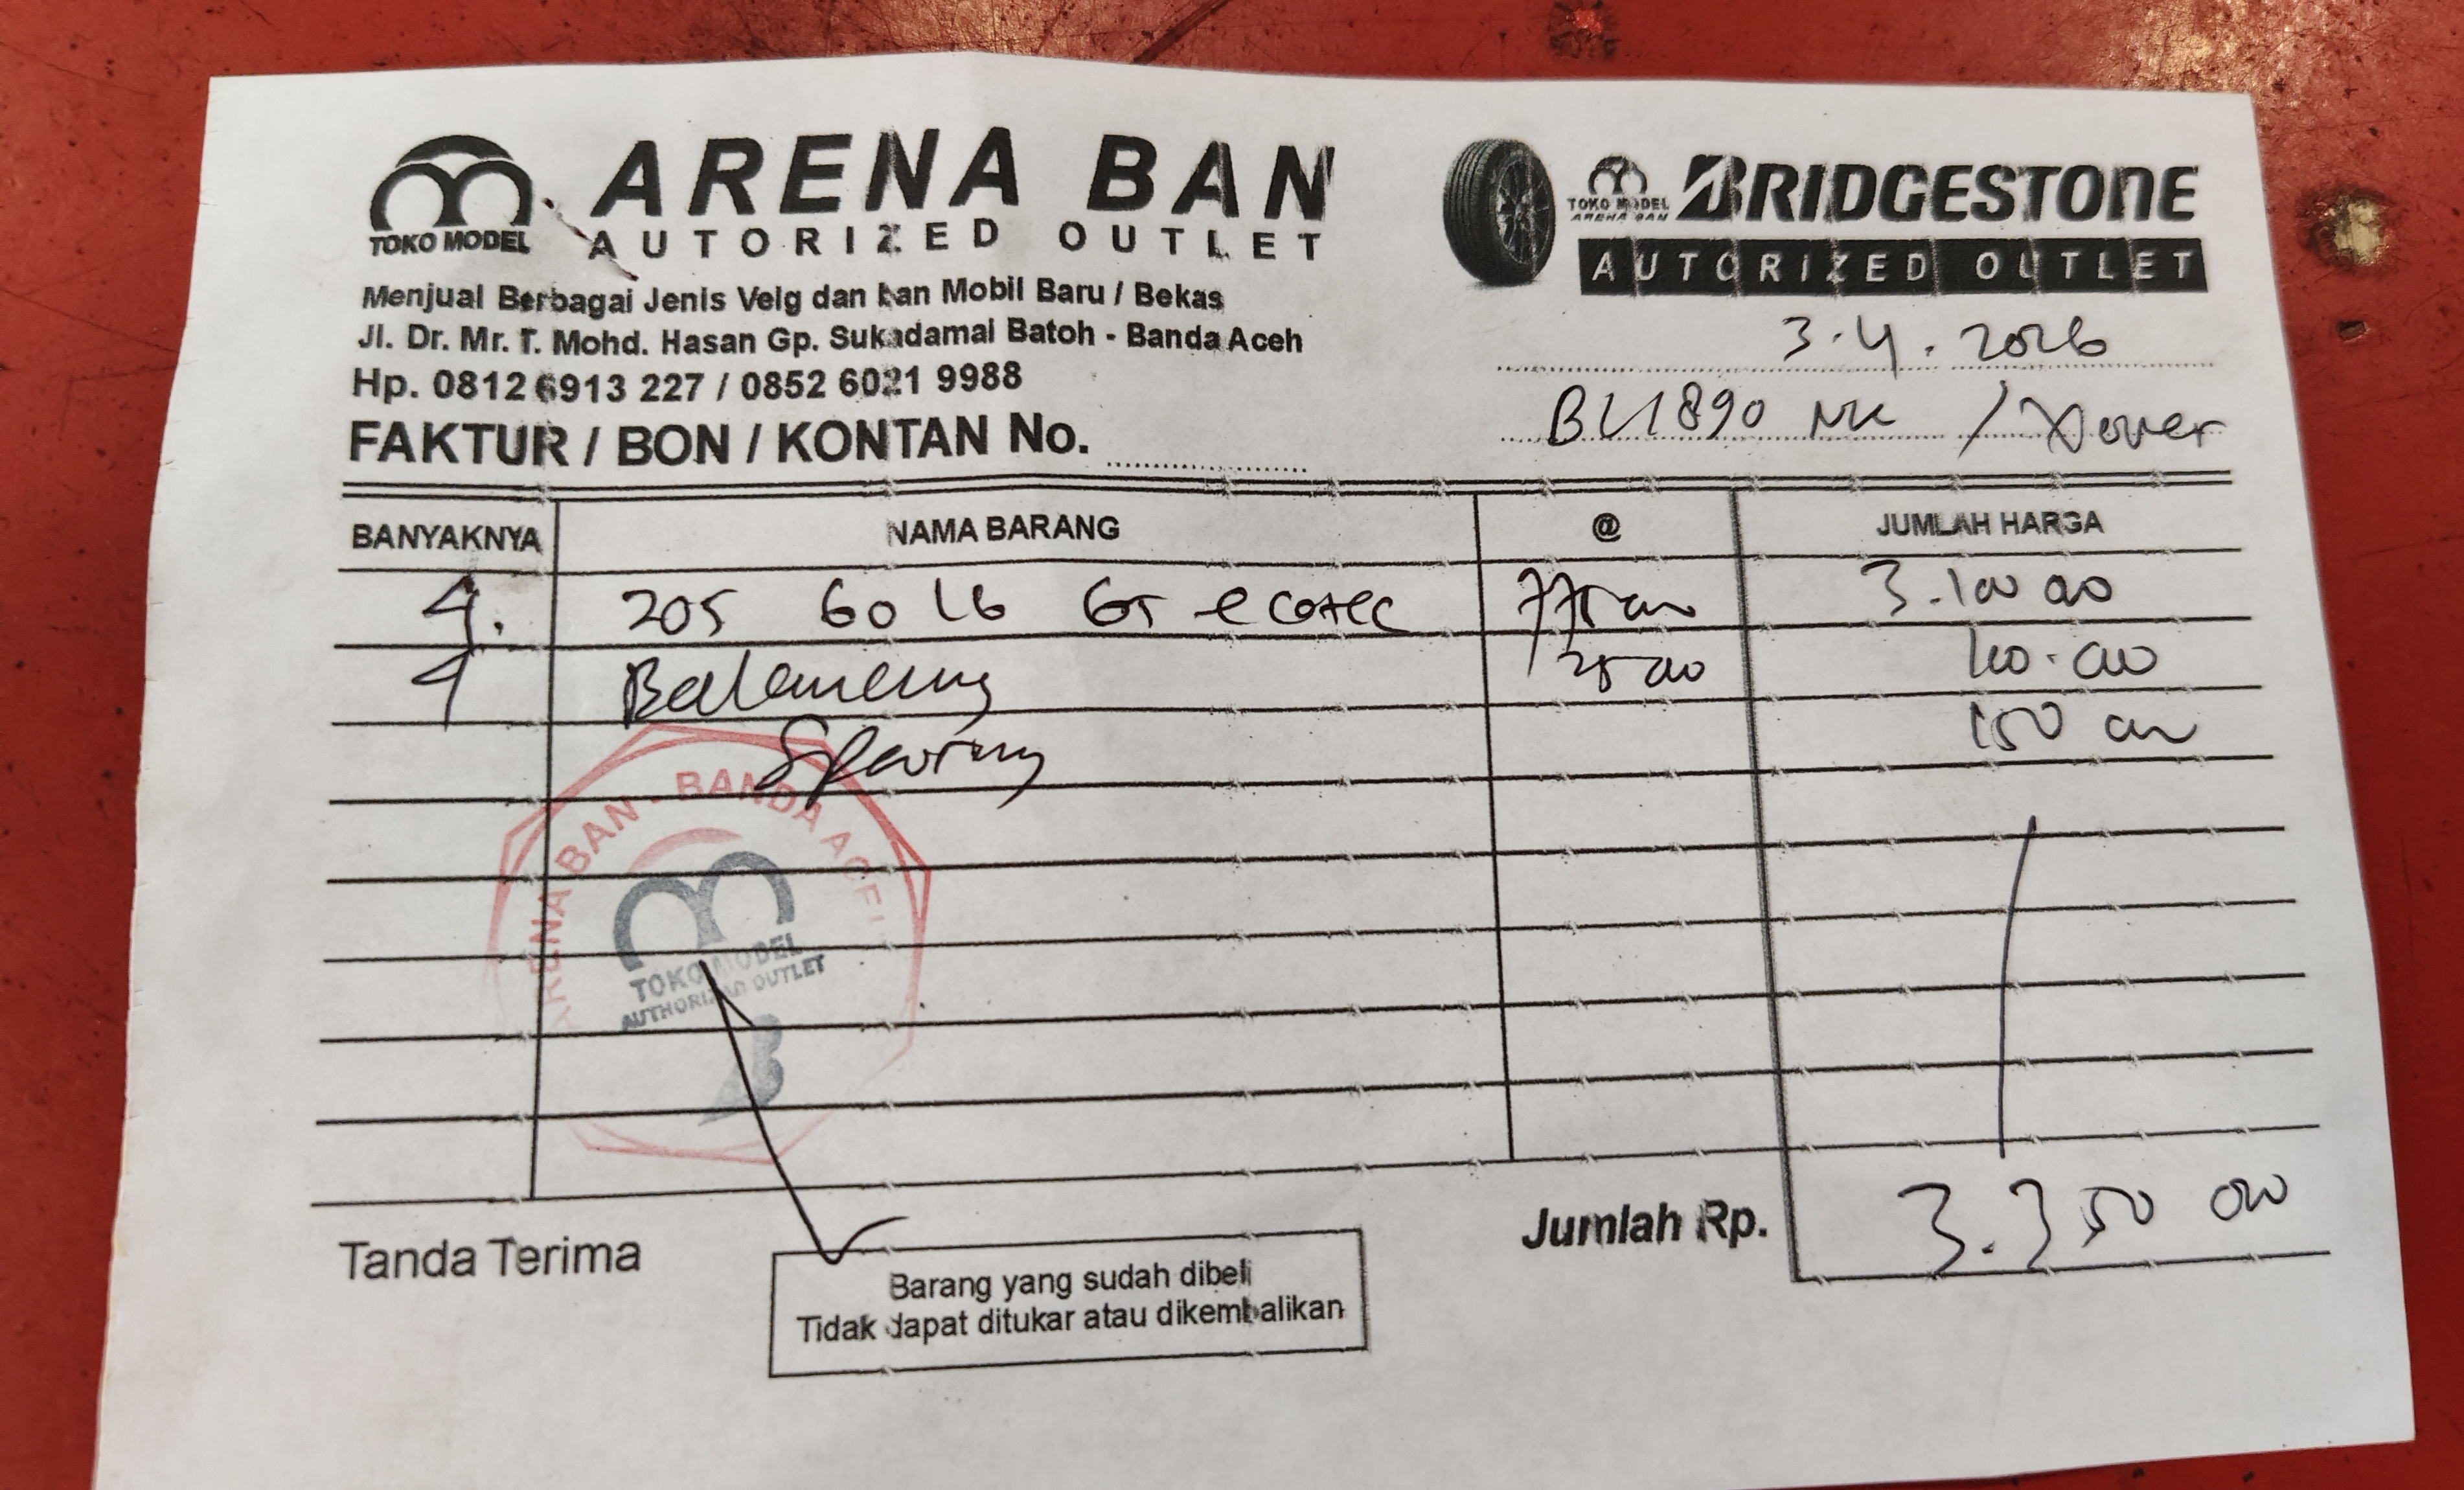 TOKO MODEL
ARENA BAN
AUTORIZED OUTLET
TOKO MODEL
ARENA BAN
BRIDGESTONE
AUTORIZED OUTLET
Menjual Berbagai Jenis Velg dan ban Mobil Baru / Bekas
Jl. Dr. Mr. T. Mohd. Hasan Gp. Sukadamai Batoh - Banda Aceh
Hp. 0812 6913 227 / 0852 6021 9988
3.4.2026
BL 1890 NK / Xover
FAKTUR / BON / KONTAN No.
BANYAKNYA NAMA BARANG @ JUMLAH HARGA
4. 205 60 16 GT ecotec 775 000 3.100 000
4 Balancing 25 000 100.000
Spooring 150 000
ARENA BAN - BANDA ACEH
TOKO MODEL
AUTHORIZAD OUTLET
Jumlah Rp. 3.350 000
Tanda Terima
Barang yang sudah dibeli
Tidak dapat ditukar atau dikembalikan